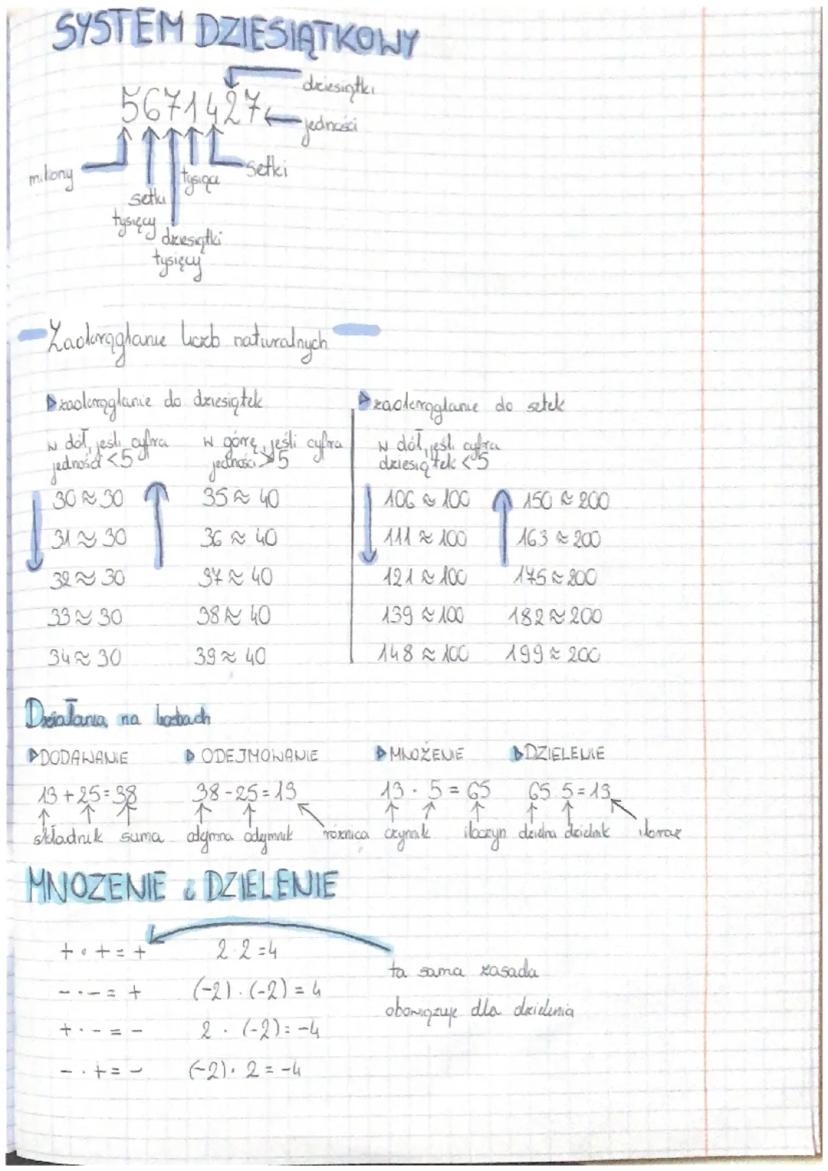 SYSTEM DZIESIĄTKOWY
dziesiątki
5671427
jedności
miliony
setki tysięcy
dziesiątki tysięcy
tysiące
setki
Zaokrąglanie liczb naturalnych
zaokrąglanie do dziesiątek
w dół, jeśli cyfra
jedności <5
w górę, jeśli cyfra
jedności ≥5
30 ≈ 30
35 ≈ 40
31 ≈ 30
36 ≈ 40
32 ≈ 30
37 ≈ 40
33 ≈ 30
38 ≈ 40
34 ≈ 30
39 ≈ 40
zaokrąglanie do setek
w dół, jeśli cyfra
dziesiątek <5
106 ≈ 100
150 ≈ 200
111 ≈ 100
163 ≈ 200
121 ≈ 100
175 ≈ 200
139 ≈ 100
182 ≈ 200
148 ≈ 100
199 ≈ 200
Działania na liczbach
DODAWANIE
ODEJMOWANIE
MNOŻENIE
DZIELENIE
13 + 25 = 38
38 - 25 = 13
13 · 5 = 65
65 5 = 13
składnik suma
odjemna odjemnik różnica
czynnik iloczyn
dzielna dzielnik iloraz
MNOZENIE i DZIELENIE
+ · + = +
2 · 2 = 4
- · - = +
(-2) · (-2) = 4
+ · - = -
2 · (-2) = -4
- · + = -
(-2) · 2 = -4
ta sama zasada
obowiązuje dla dzielenia